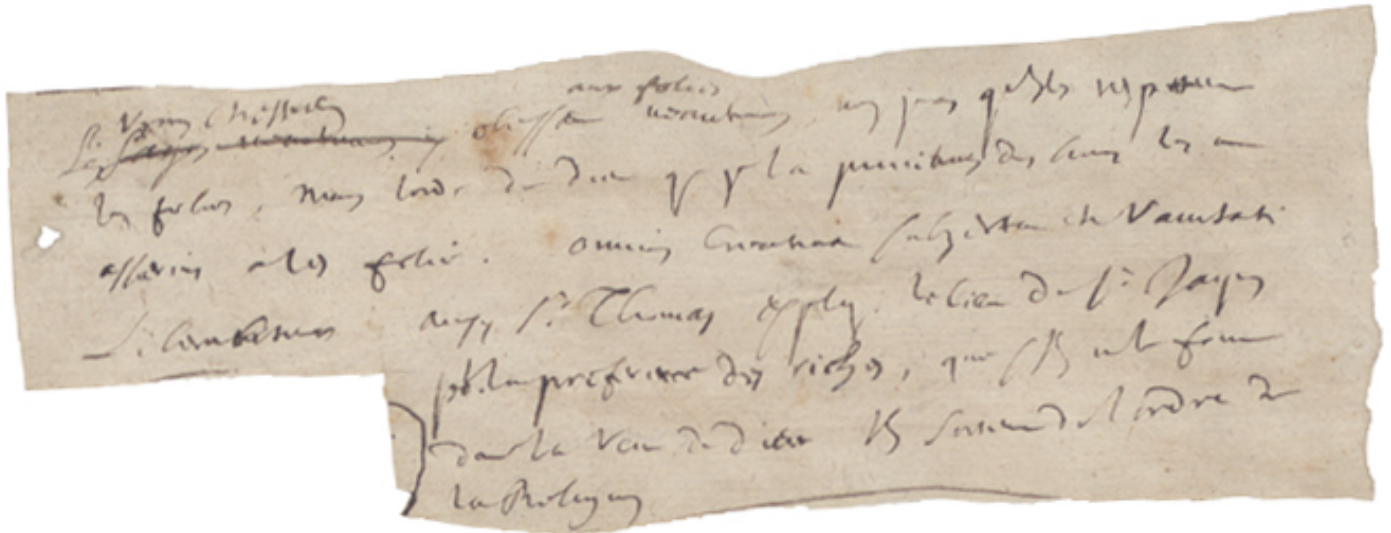 vrais chrestiens aux folies
Les obeissent neantmoins, non pas qu'ils respectent
les folies, mais l'ordre de Dieu qui pr la punition des hommes les a
asservis a ces folies. omnis creatura subjecta est vanitati
Liberabitur ainsy st Thomas expliq. le lieu de st Jaques
sur la preference des riches, que s'ils ne le font
dans la veue de dieu ils sortent de l'ordre de
la Religion